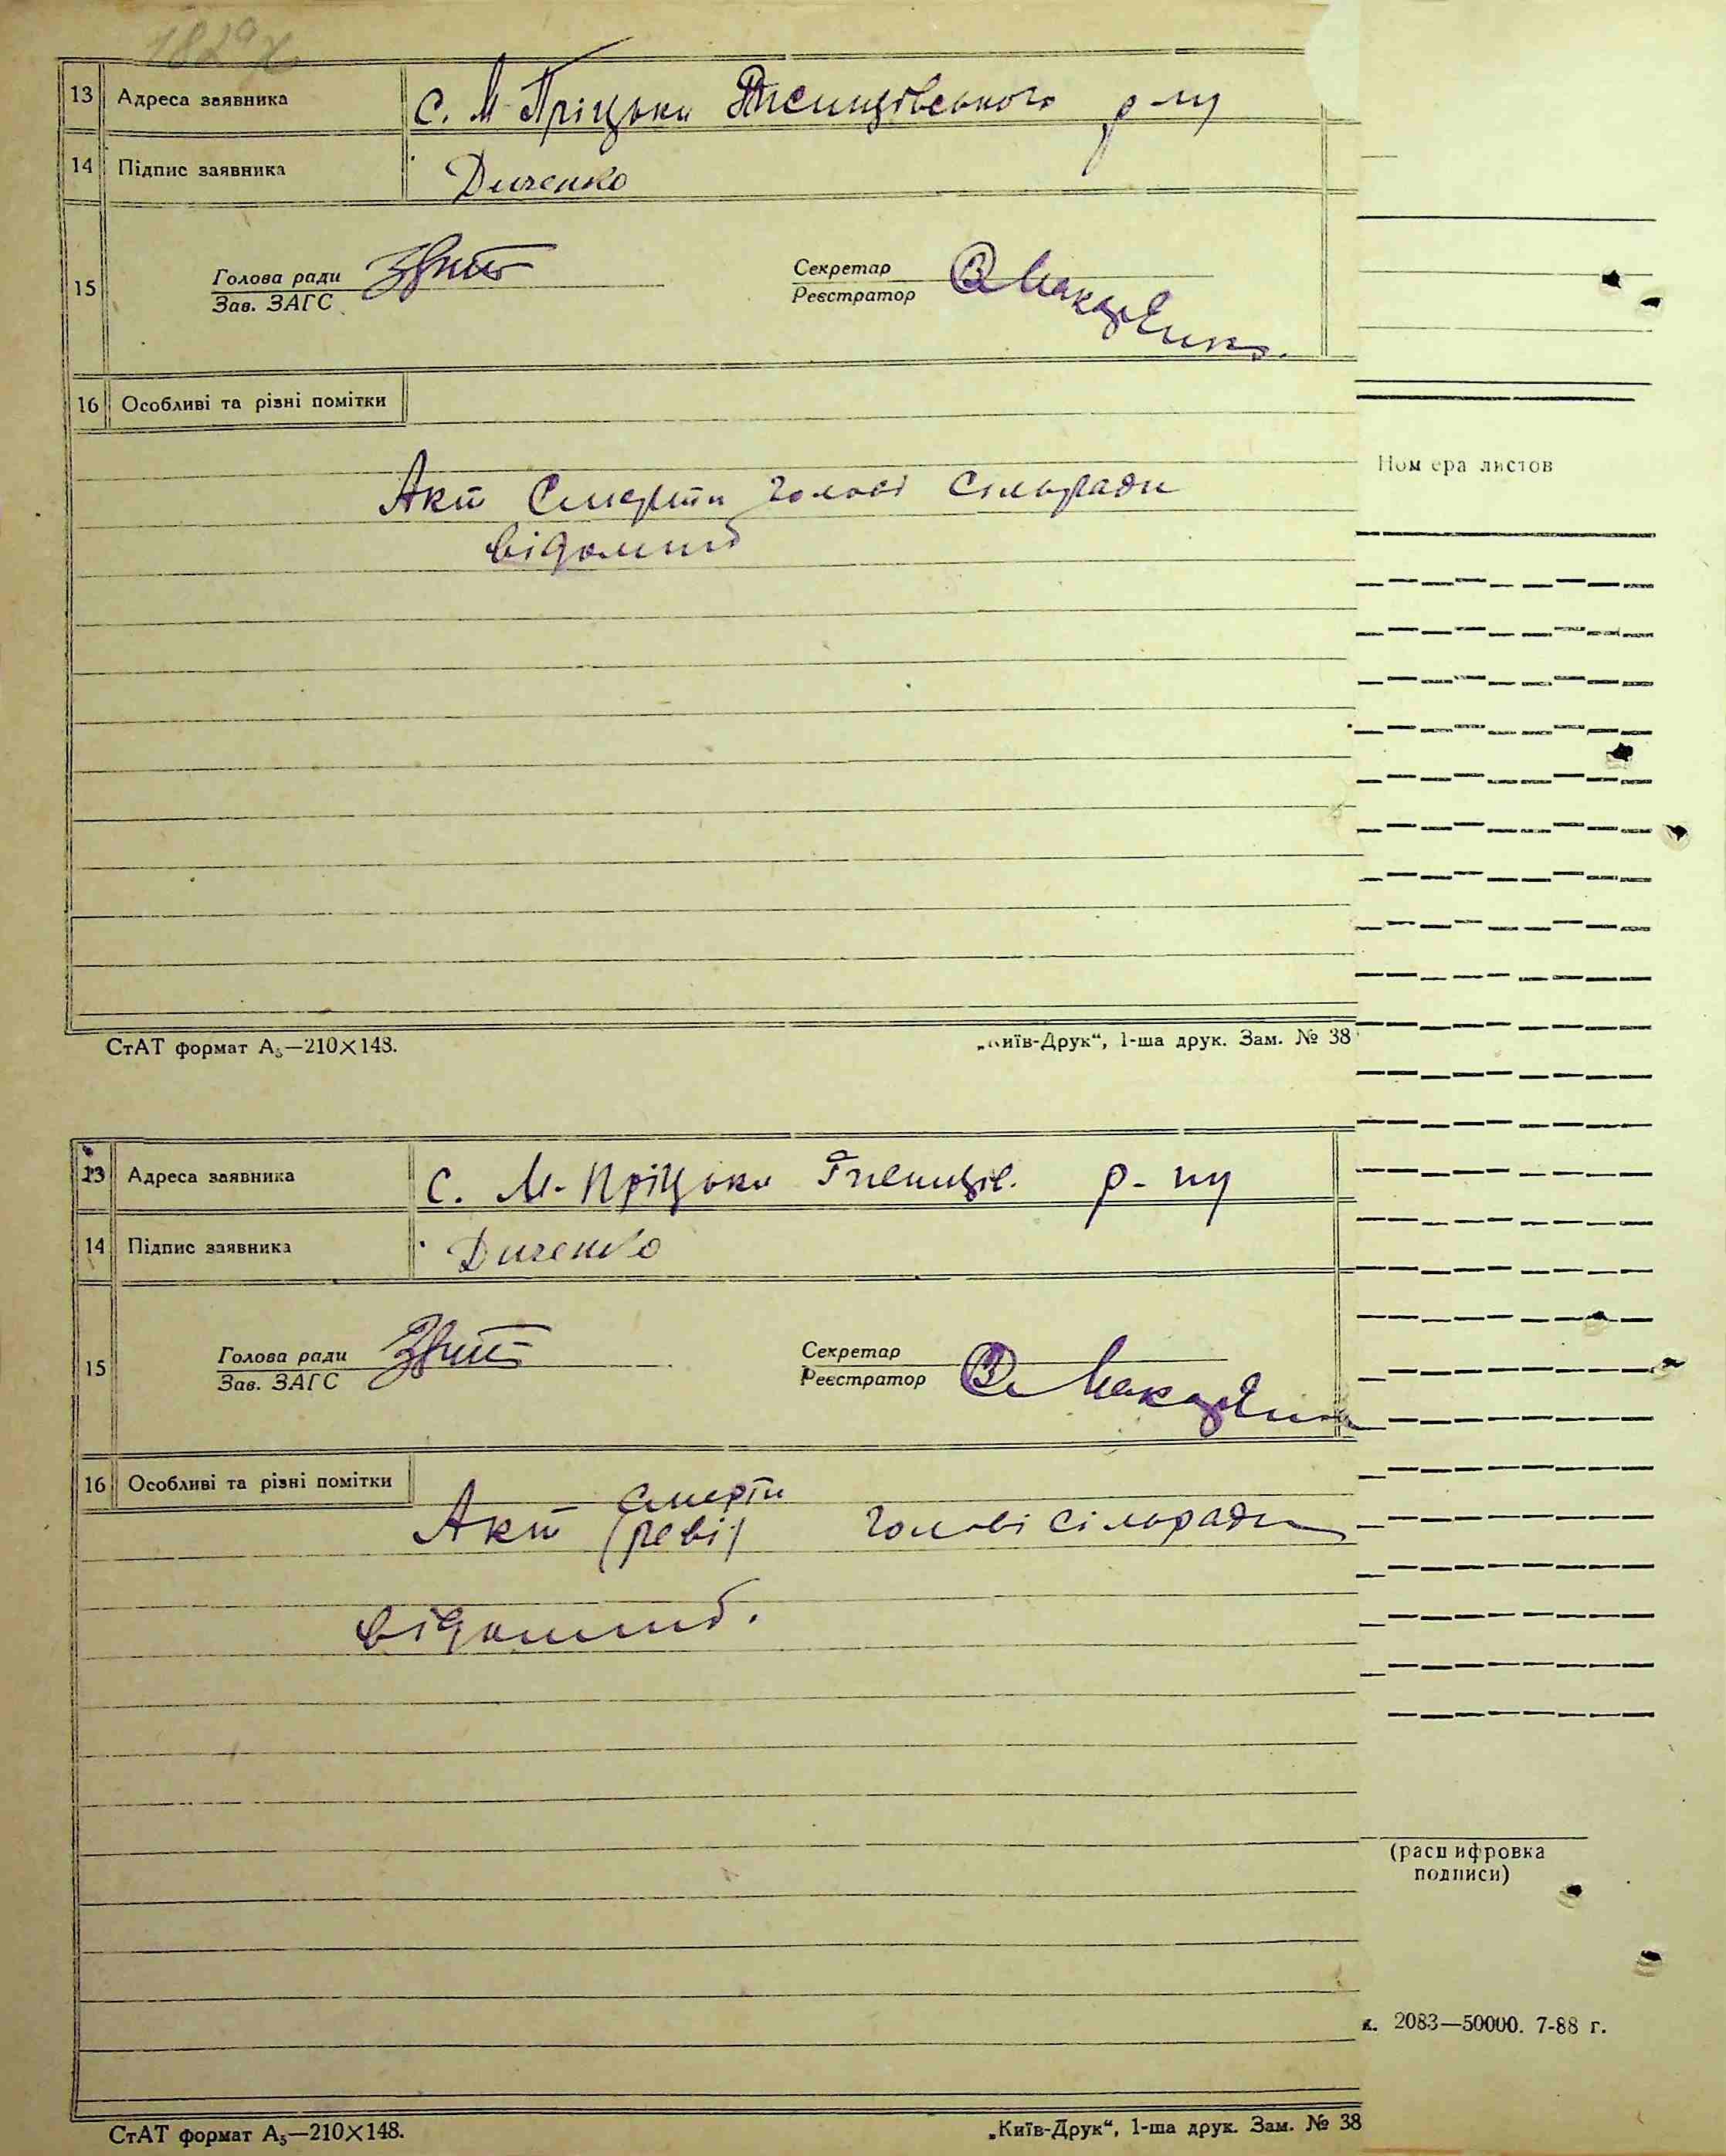 182 зв
13 Адреса заявника с. М-Пріцьки Ржищівського р-ну
14 Підпис заявника Диченко
15 Голова ради Секретар
Зав. ЗАГС Реєстратор
16 Особливі та різні помітки
Номера листов
Акт Смерти голові сільради
відомий
СтАТ формат А₅—210×148. „Київ-Друк“, 1-ша друк. Зам. № 38
13 Адреса заявника с. М-Пріцьки р-ну
14 Підпис заявника Диченко
15 Голова ради Секретар
Зав. ЗАГС Реєстратор
16 Особливі та різні помітки
Смерти
Акт голові сільради
відомий.
(расшифровка
подписи)
к. 2083—50000. 7-88 г.
СтАТ формат А₅—210×148. „Київ-Друк“, 1-ша друк. Зам. № 38